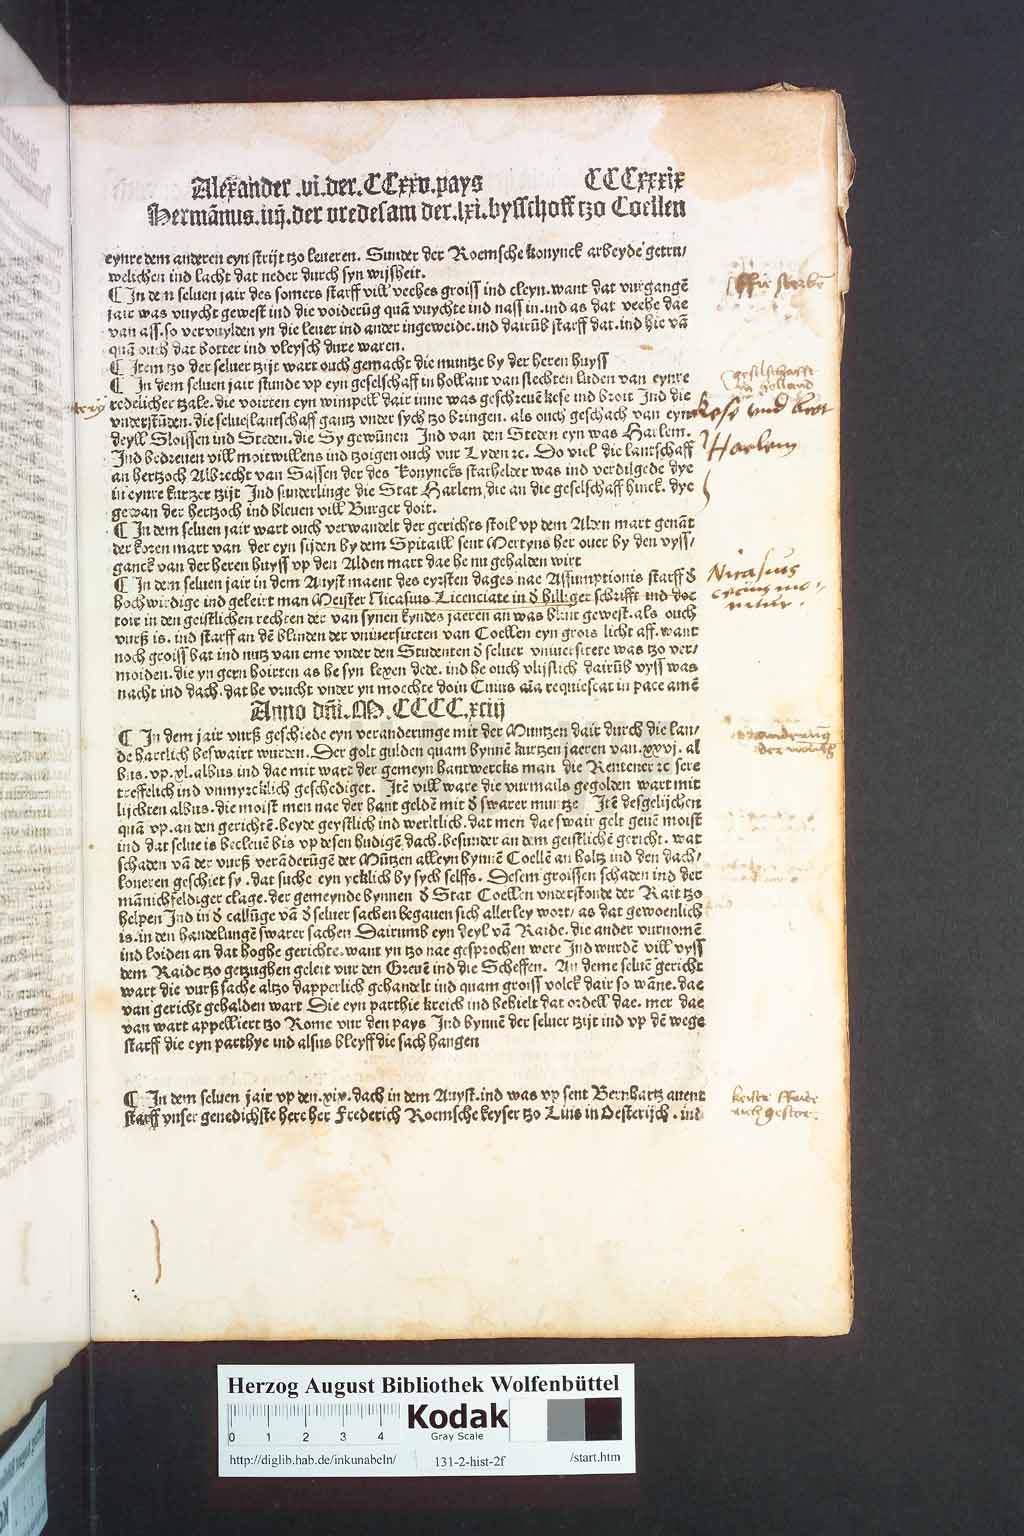 Alexander .vi.der.CCxxv.pays CCCxxxix
Hermānus.iiij.der vredesam der.lxi.bysschoff tzo Coellen
eynre dem anderen eyn strijt tzo leueren. Sunder der Roemsche konynck arbeyde getru/
welichen ind lacht dat neder durch syn wijsheit.
¶ In dem seluen jair des somers starff vill veches groiss ind cleyn. want dat vurgangē
jair was vuycht gewest ind die voiderūg quā vuychte ind nass in. ind as dat veehe dae
van ass. so vervuylden yn die leuer ind ander ingeweide. ind dairūb starff dat. ind hie vā
quā ouch dat botter ind vleysch dure waren.
¶ Item tzo der seluer tzijt wart ouch gemacht die muntze by der heren huyss
¶ In dem seluen jair stunde vp eyn geselschaff in hollant van slechten luden van eynre
redelicher tzale. die voirten eyn wimpell dair inne was geschreuē kese ind broit Ind die
vnderstūden. die selue lantschaff gantz vnder sych tzo bringen. als ouch geschach van eym
deyll Sloissen ind Steden. die Sy gewūnen Ind van den Steden eyn was Harlem.
Ind bedreuen vill moitwillens ind tzoigen ouch vur Lyden ꝛc. So viel die lantschaff
an hertzoch Albrecht van Sassen der des konyncks stathelder was ind verdilgede dye
in eynre kurtzer tzijt Ind sunderlinge die Stat Harlem, die an die geselschaff hinck. dye
gewan der hertzoch ind bleuen vill Burger doit.
¶ In dem seluen jair wart ouch verwandelt der gerichts stoil vp dem Alden mart genāt
der koren mart van der eyn sijden by dem Spitaill sent Mertyns her ouer by den vyss/
ganck van der heren huyss vp den Alden mart dae he nu gehalden wirt
¶ In dem seluen jair in dem Auyst maent des eyrsten dages nae Assumptionis starff đ
hochwirdige ind geleirt man Meister Nicasius Licenciate in đ hilliger schrifft ind doc
toir in den geistlichen rechten der van synen kyndes jaeren an was blint gewest. als ouch
vurß is. ind starff an dē blinden der vniuersiteten van Coellen eyn grois licht aff. want
noch groiss bat ind nutz van eme vnder den Studenten đ seluer vniuersitete was tzo ver/
moiden. die yn gern hoirten as he syn lexen dede. ind he ouch vlijslich dairūb vyss was
nacht ind dach. dat he vrucht vnder yn moechte doin Cuius aīa requiescat in pace amē
Anno dñi. M. CCCC.xciij
¶ In dem jair vurß geschiede eyn veranderunge mit der Muntzen dair durch die lan-
de hartlich beswairt wurden. Der golt gulden quam bynnē kurtzen jaeren van.xxvj. al
bis. vp. xl. albus ind dae mit wart der gemeyn hantwercks man die Rentener ꝛc sere
treffelich ind vnmyrcklich geschediget. Itē vill ware die vurmails gegolden wart mit
lijchten albus. die moist men nae der hant geldē mit đ swarer muntze Itē desgelijchen
quā vp. an den gerichtē. beyde geystlich ind werltlich. dat men dae swair gelt geuē moist
ind dat selue is becleuē bis vp desen hudigē dach. besunder an dem geistlichē gericht. wat
schaden vā der vurß verāderūgē der Mūtzen alleyn bynnē Coellē an holtz ind den dach/
loneren geschiet sy. dat suche eyn ycklich by sych selffs. Desem groissen schaden ind der
mānichfeldiger clage. der gemeynde bynnen đ Stat Coellen vnderstonde der Rait tzo
helpen Ind in đ callūge vā đ seluer sachen begauen sich allerley wort/ as dat gewoenlich
is. in den handelungē swarer sachen Dairumb eyn deyl vā Raide. die ander vurnomē
ind loiden an dat hoghe gerichte. want yn tzo nae gesprochen were Ind wurdē vill vyss
dem Raide tzo getzughen geleit vur den Greuē ind die Scheffen. An deme seluē gericht
wart die vurß sache altzo dapperlich gehandelt ind quam groiss volck dair so wāne. dae
van gericht gehalden wart Die eyn parthie kreich ind behielt dat ordell dae. mer dae
van wart appelliert tzo Rome vur den pays Ind bynnē der seluer tzijt ind vp dē wege
starff die eyn parthye ind alsus bleyff die sach hangen
¶ In dem seluen jair vp den.xix. dach in dem Auyst. ind was vp sent Bernhartz auent
starff vnser genedichste here her Frederich Roemsche keyser tzo Lins in Oesterijch. ind
geselschafft
in Holland
kese vnd brot
Harlem
Nicasius
Herzog August Bibliothek Wolfenbüttel
0 1 2 3 4
Kodak
Gray Scale
http://diglib.hab.de/inkunabeln/ 131-2-hist-2f /start.htm